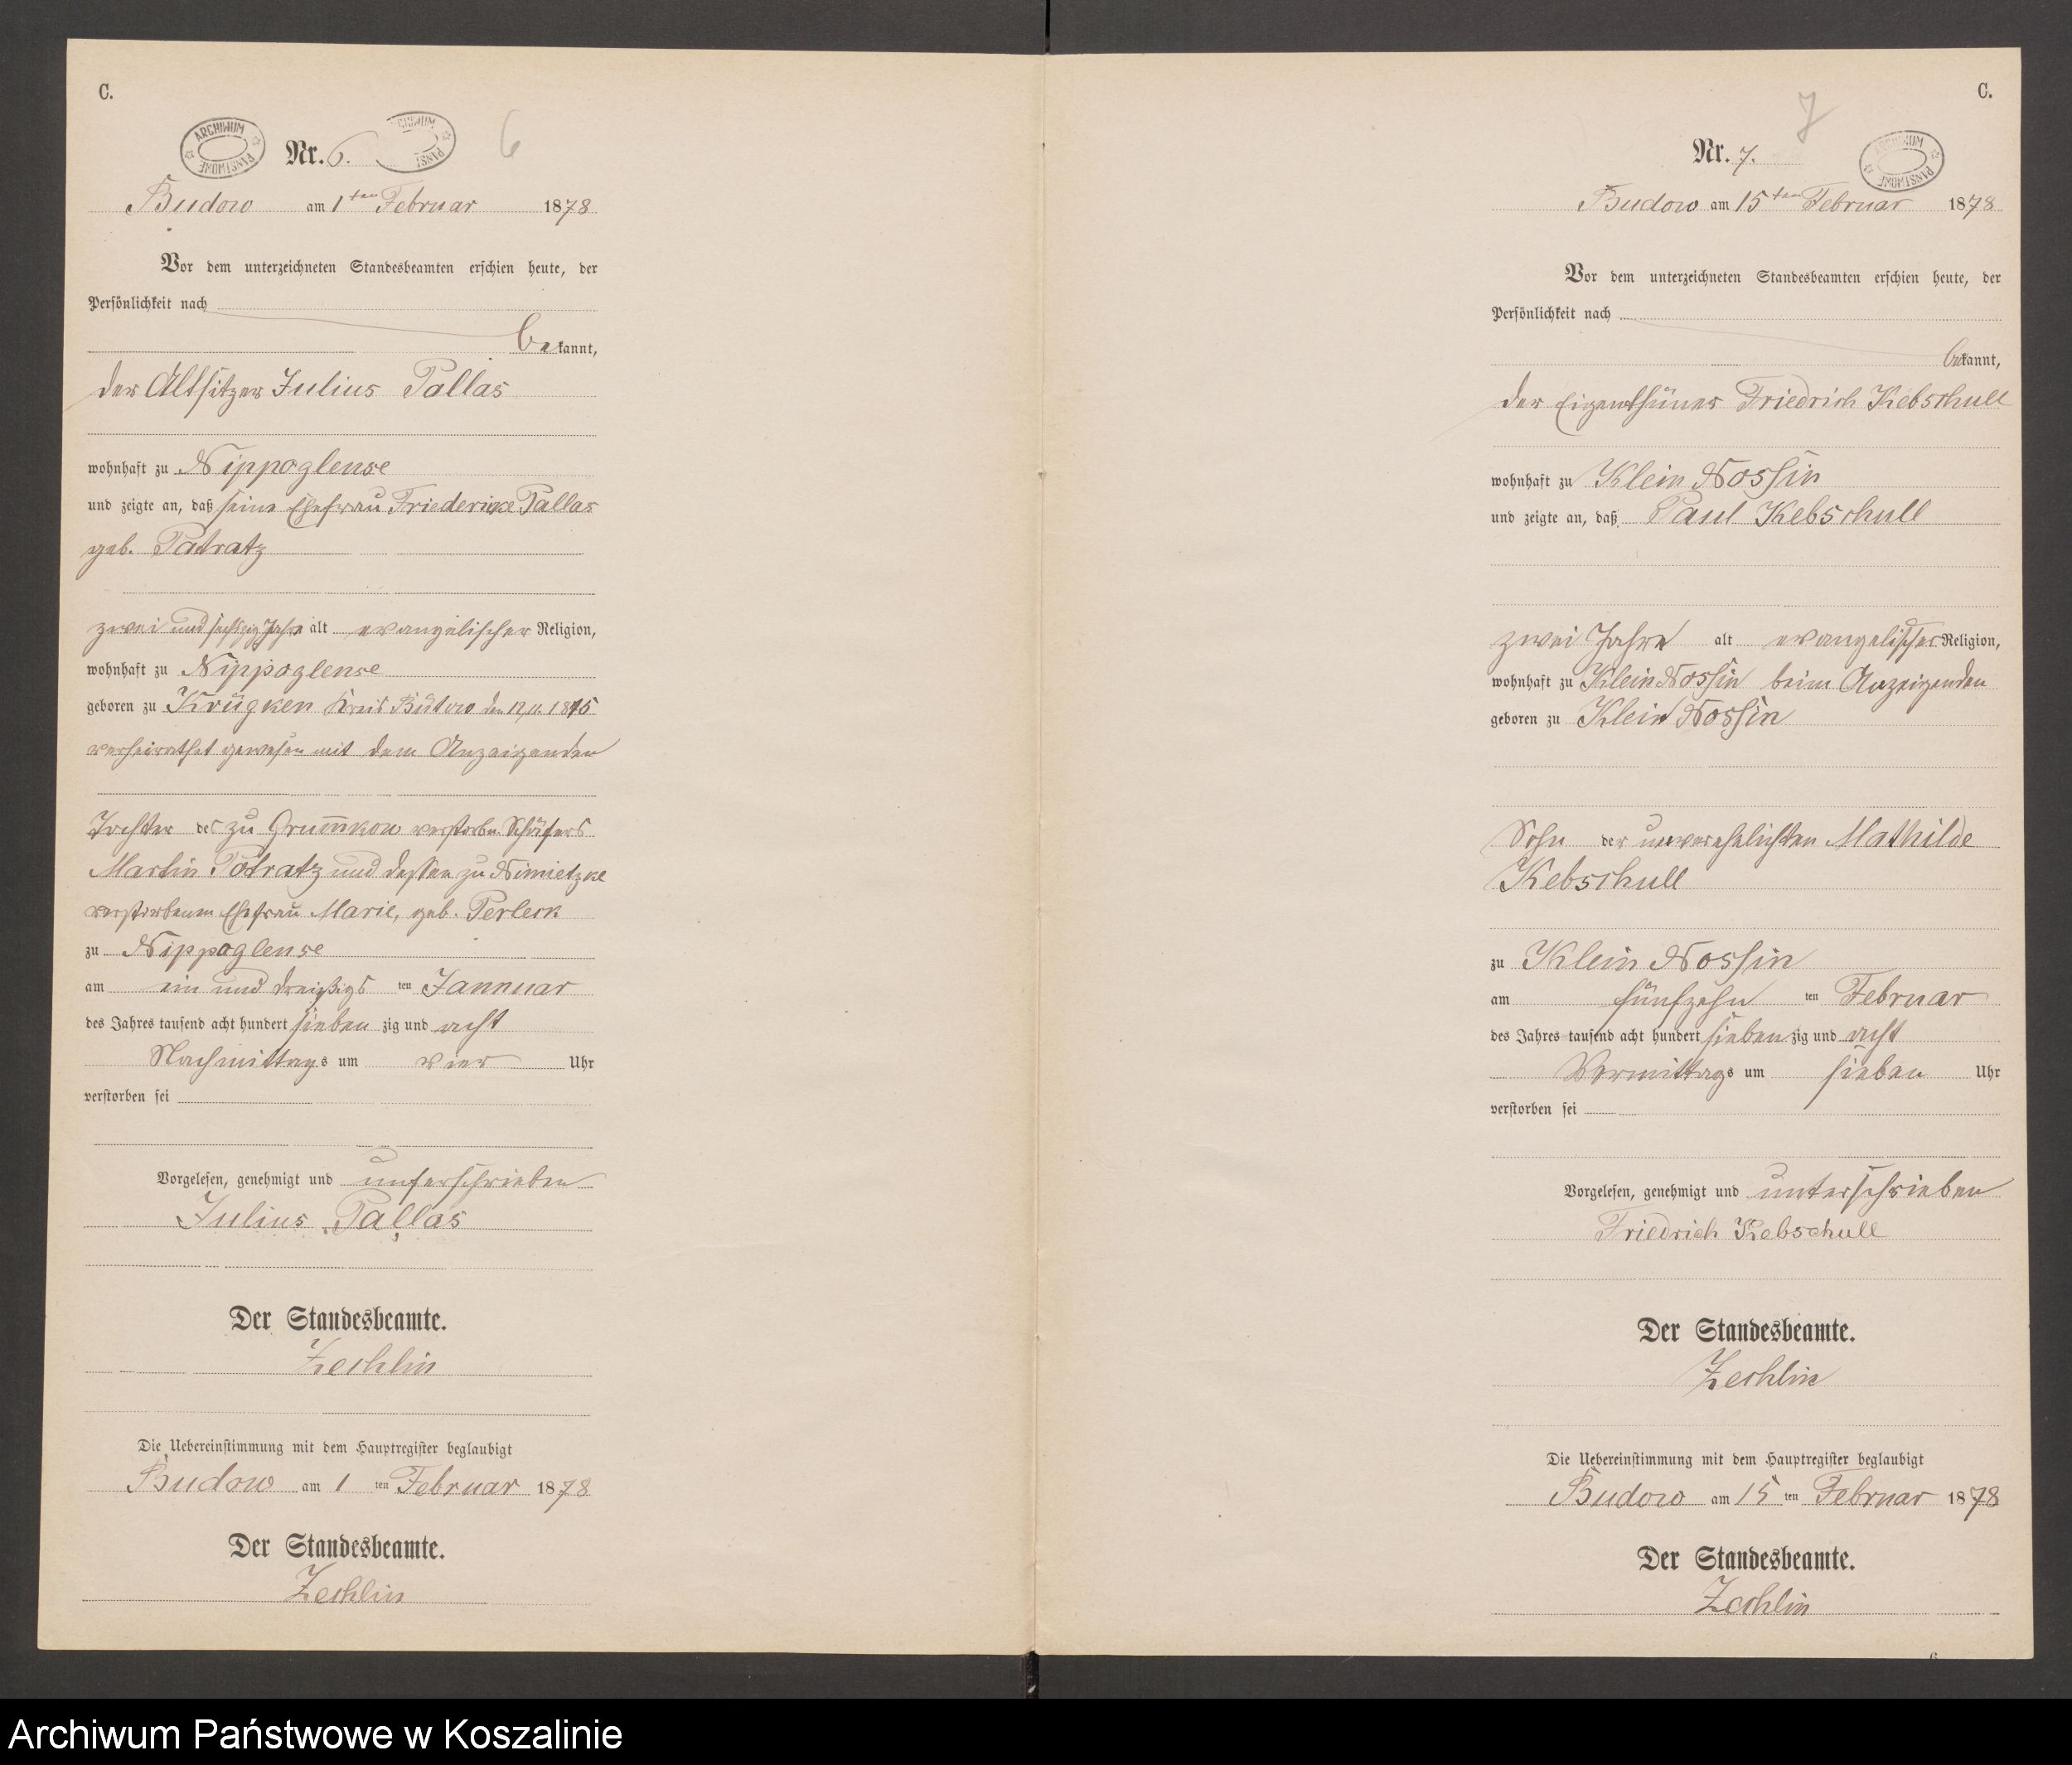 C.
ARCHIWUM PAŃSTWOWE
Nr. 6.
6
Budow am 1ten Februar 1878
Vor dem unterzeichneten Standesbeamten erschien heute, der
Persönlichkeit nach
bekannt,
der Altsitzer Julius Pallas
wohnhaft zu Nippoglense
und zeigte an, daß seine Ehefrau Friedericke Pallas
geb. Patratz
zwei und sechszig Jahre alt evangelischer Religion,
wohnhaft zu Nippoglense
geboren zu Krügken Kreis Bütow den 1815
verheirathet gewesen mit dem Anzeigenden
Tochter des zu Grum̅kow verstorbn. Schäfers
Martin Potratz und dessen zu Nimietzke
verstorbenen Ehefrau Marie, geb. Perleck
zu Nippoglense
am ein und dreißigs ten Jannuar
des Jahres tausend acht hundert sieben zig und acht
Nachmittags um vier Uhr
verstorben sei
Vorgelesen, genehmigt und unterschrieben
Julius Pallas
Der Standesbeamte.
Zechlin
Die Uebereinstimmung mit dem Hauptregister beglaubigt
Budow am 1 ten Februar 1878
Der Standesbeamte.
Zechlin
C.
7
Nr. 7.
ARCHIWUM PAŃSTWOWE
Budow am 15ten Februar 1878
Vor dem unterzeichneten Standesbeamten erschien heute, der
Persönlichkeit nach
bekannt,
der Eigenthümer Friedrich Kebschull
wohnhaft zu Klein Nossin
und zeigte an, daß Paul Kebschull
zwei Jahre alt evangelischer Religion,
wohnhaft zu Klein Nossin beim Anzeigenden
geboren zu Klein Nossin
Sohn der unverehelichten Mathilde
Kebschull
zu Klein Nossin
am fünfzehn ten Februar
des Jahres tausend acht hundert sieben zig und acht
Vormittags um sieben Uhr
verstorben sei
Vorgelesen, genehmigt und unterschrieben
Friedrich Kebschull
Der Standesbeamte.
Zechlin
Die Uebereinstimmung mit dem Hauptregister beglaubigt
Budow am 15 ten Februar 1878
Der Standesbeamte.
Zechlin
Archiwum Państwowe w Koszalinie